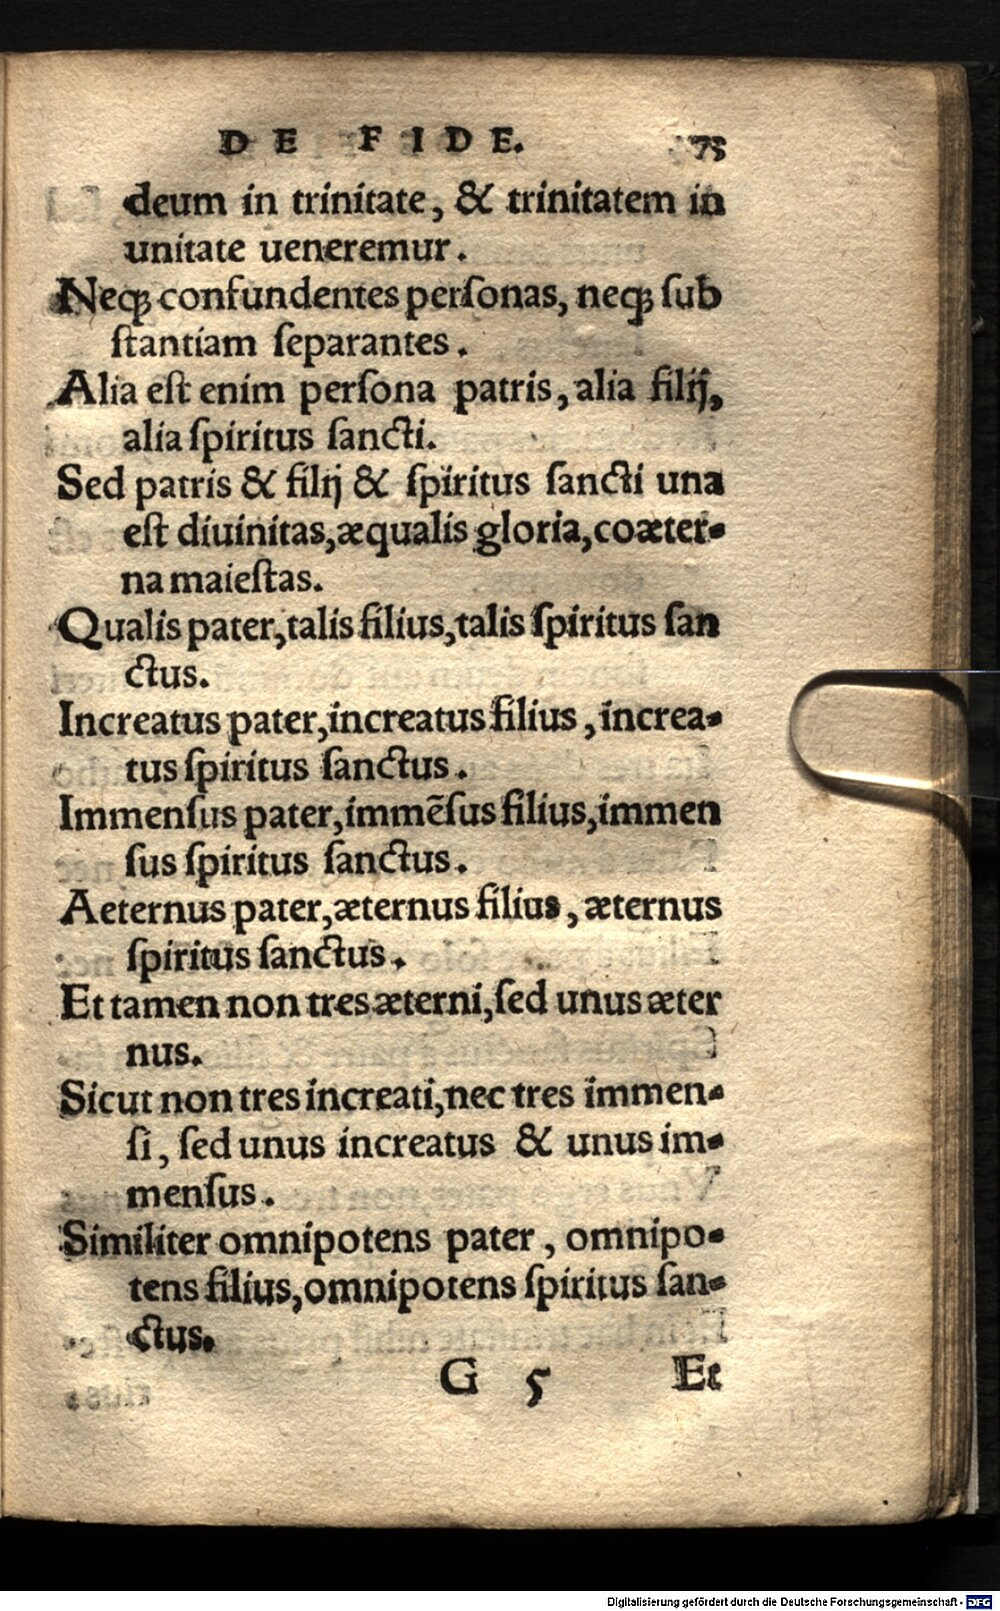 DE FIDE. 75
deum in trinitate, & trinitatem in
unitate ueneremur.
Neqꝫ confundentes perſonas, neqꝫ ſub
ſtantiam ſeparantes.
Alia eſt enim perſona patris, alia filij,
alia ſpiritus ſancti.
Sed patris & filij & ſpiritus ſancti una
eſt diuinitas, æqualis gloria, coæter-
na maieſtas.
Qualis pater, talis filius, talis ſpiritus ſan
ctus.
Increatus pater, increatus filius, increa-
tus ſpiritus ſanctus.
Immenſus pater, immẽſus filius, immen
ſus ſpiritus ſanctus.
Aeternus pater, æternus filius, æternus
ſpiritus ſanctus.
Et tamen non tres æterni, ſed unus æter
nus.
Sicut non tres increati, nec tres immen-
ſi, ſed unus increatus & unus im-
menſus.
Similiter omnipotens pater, omnipo-
tens filius, omnipotens ſpiritus ſan-
ctus.
G 5 Et
Digitalisierung gefördert durch die Deutsche Forschungsgemeinschaft - DFG